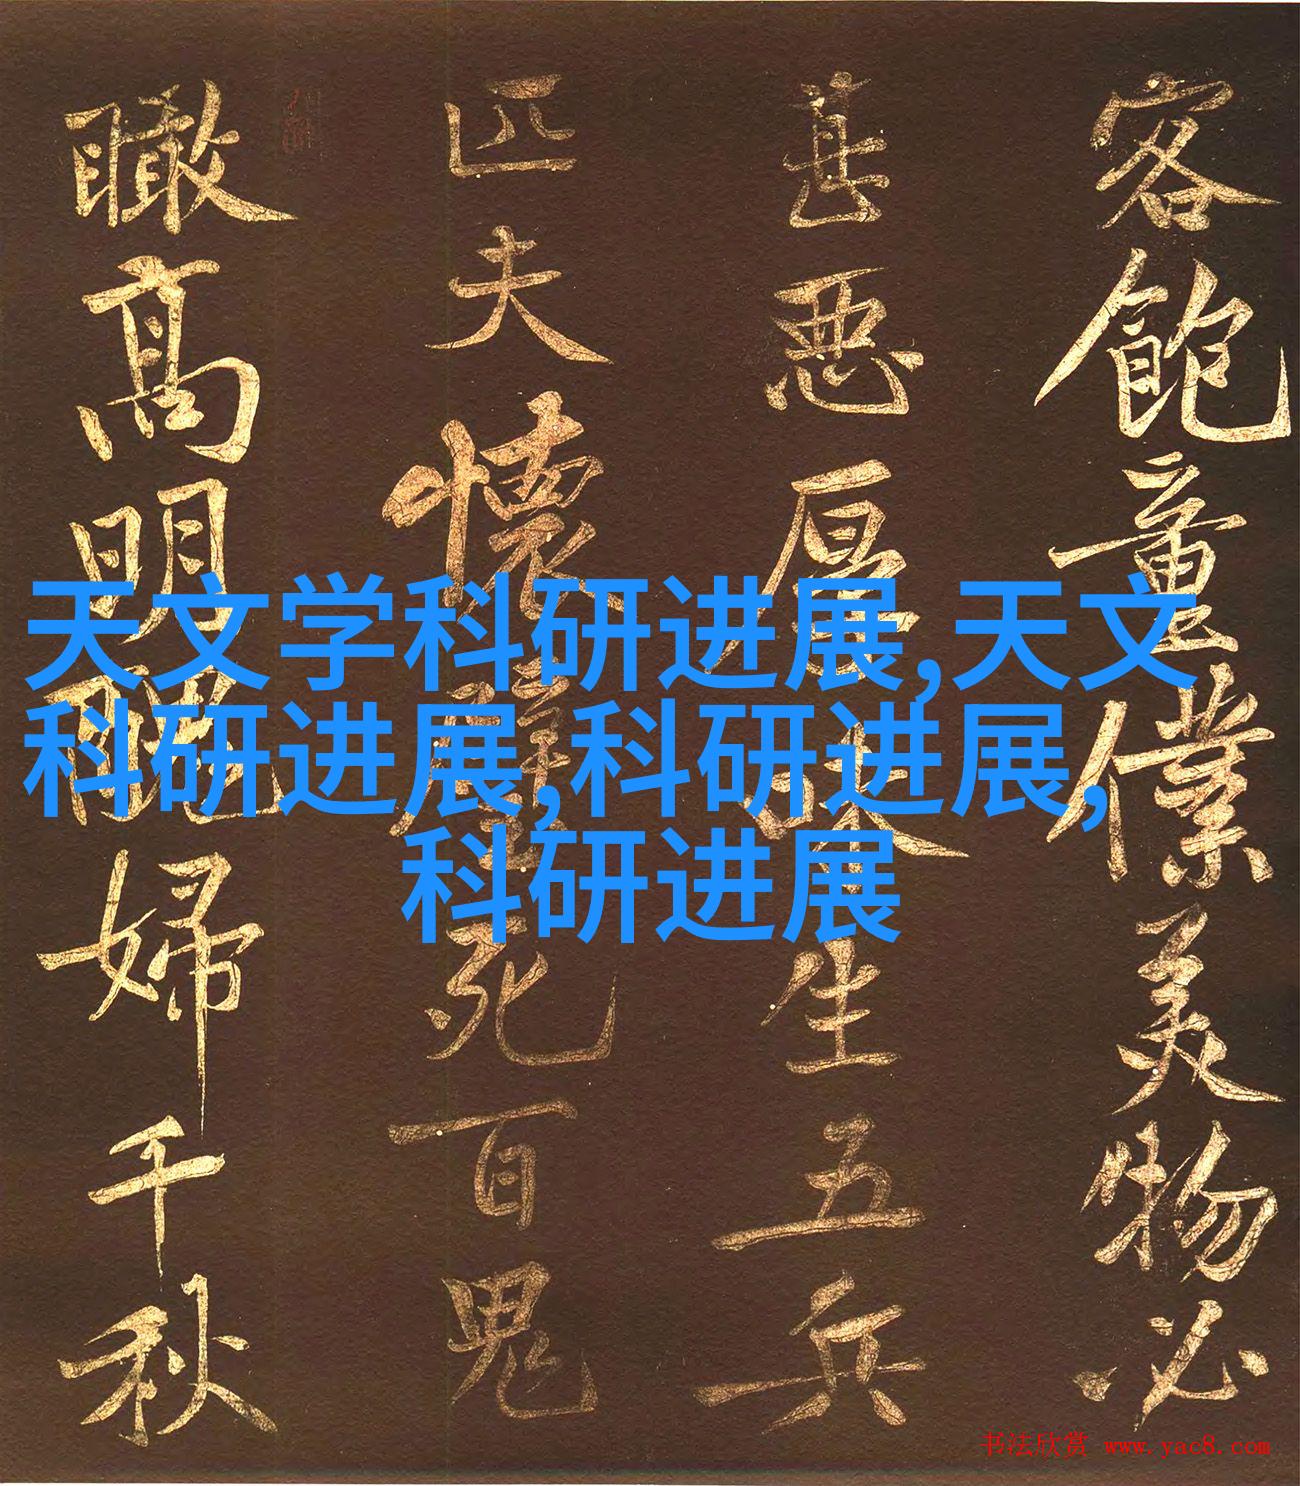 客飽童僕美物必
甚惡厚味生五兵
匹夫懷璧死百鬼
瞰高明醜婦千秋
天文学科研进展,天文
科研进展,科研进展,
科研进展
书法欣赏 www.yac8.com